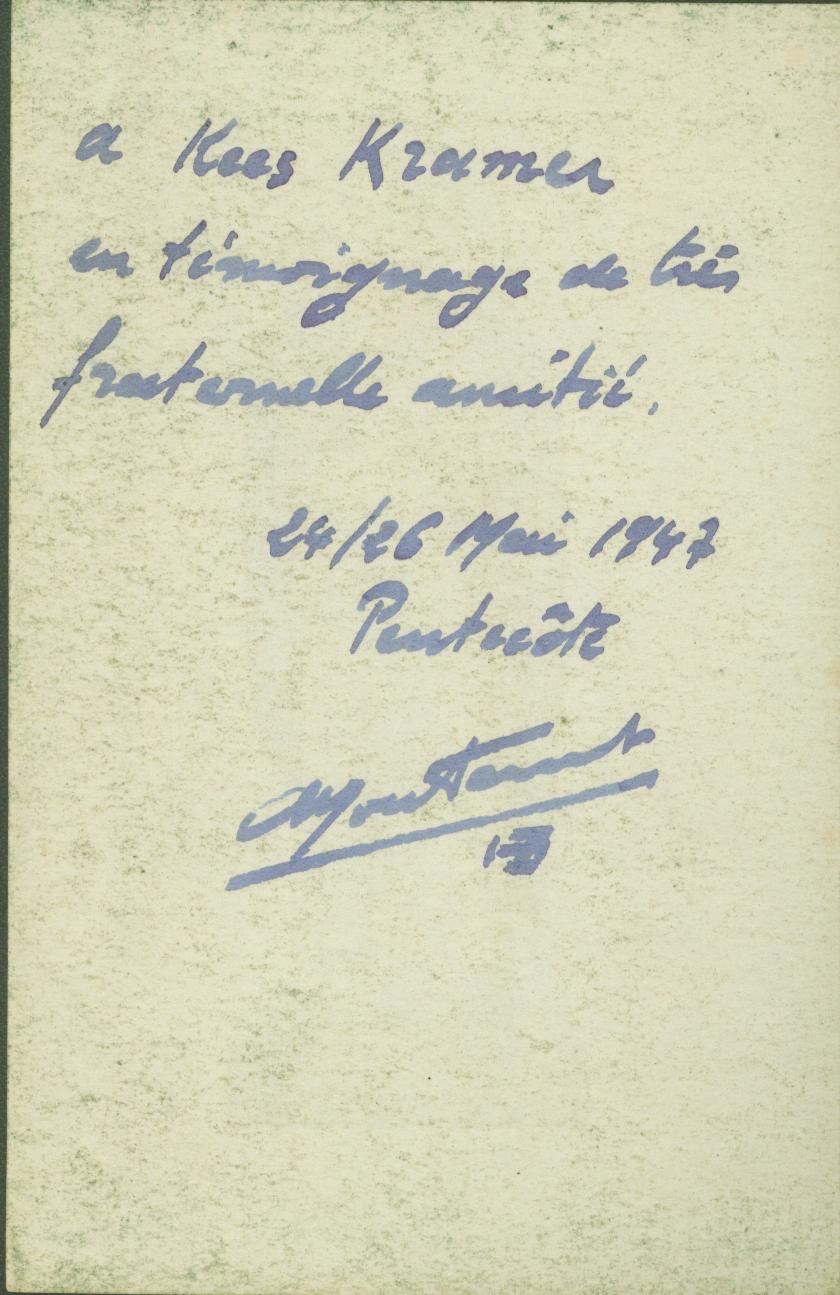 a Kees Kramer
en témoignage de très
fraternelle amitié.
24/26 Mai 1947
Pentecôte